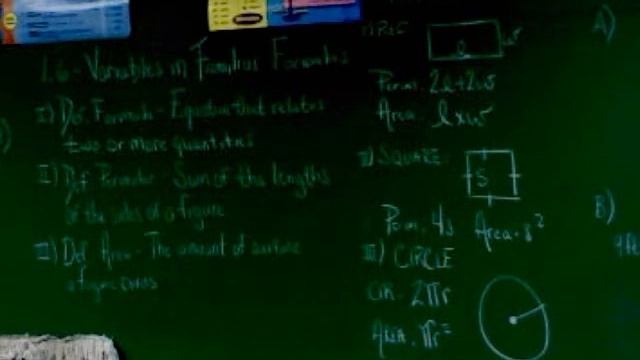 1.6 - Variables in Familiar Formulas
I) Def. Formula - Equation that relates
two or more quantities
II) Def Perimeter - Sum of the lengths
of the sides of a figure
III) Def Area - The amount of surface
a figure covers
I) REC
l
w
Perim. 2l+2w
Area. lxw
II) SQUARE
S
Perim. 4s Area. s²
III) CIRCLE
CIR. 2πr
AREA. πr²
A)
B)